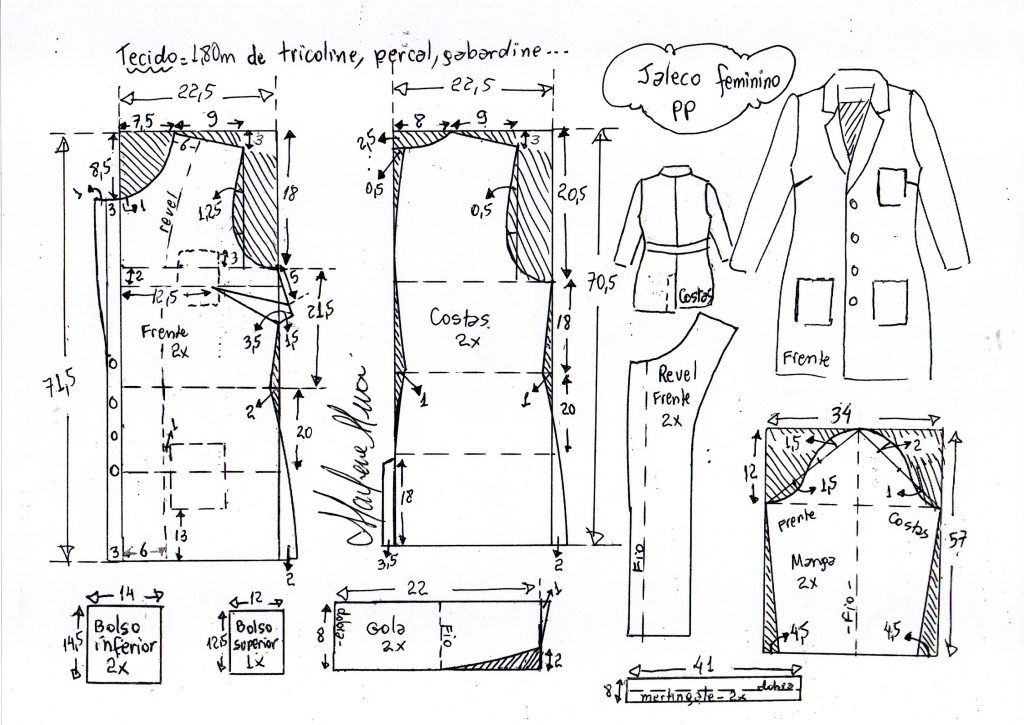 Tecido = 1,80m de tricoline, percal, gabardine...
Jaleco feminino
PP
22,5
7,5
9
6
3
8,5
1
3
1
revel
1,25
18
3
2
12,5
5
3,5
1,5
21,5
Frente
2x
71,5
2
20
1
13
3
6
2
22,5
8
9
2,5
3
0,5
0,5
20,5
70,5
Costas
2x
18
1
1
20
18
3,5
2
Marlene Mukai
Costas
Frente
Revel
Frente
2x
Fio
34
1,5
2
12
1,5
1
Frente
Costas
57
Manga
2x
-Fio-
4,5
4,5
14
14,5
Bolso
inferior
2x
12
12,5
Bolso
superior
1x
22
1
8
dobra
Gola
2x
Fio
2
41
8
martingale - 2x
dobra